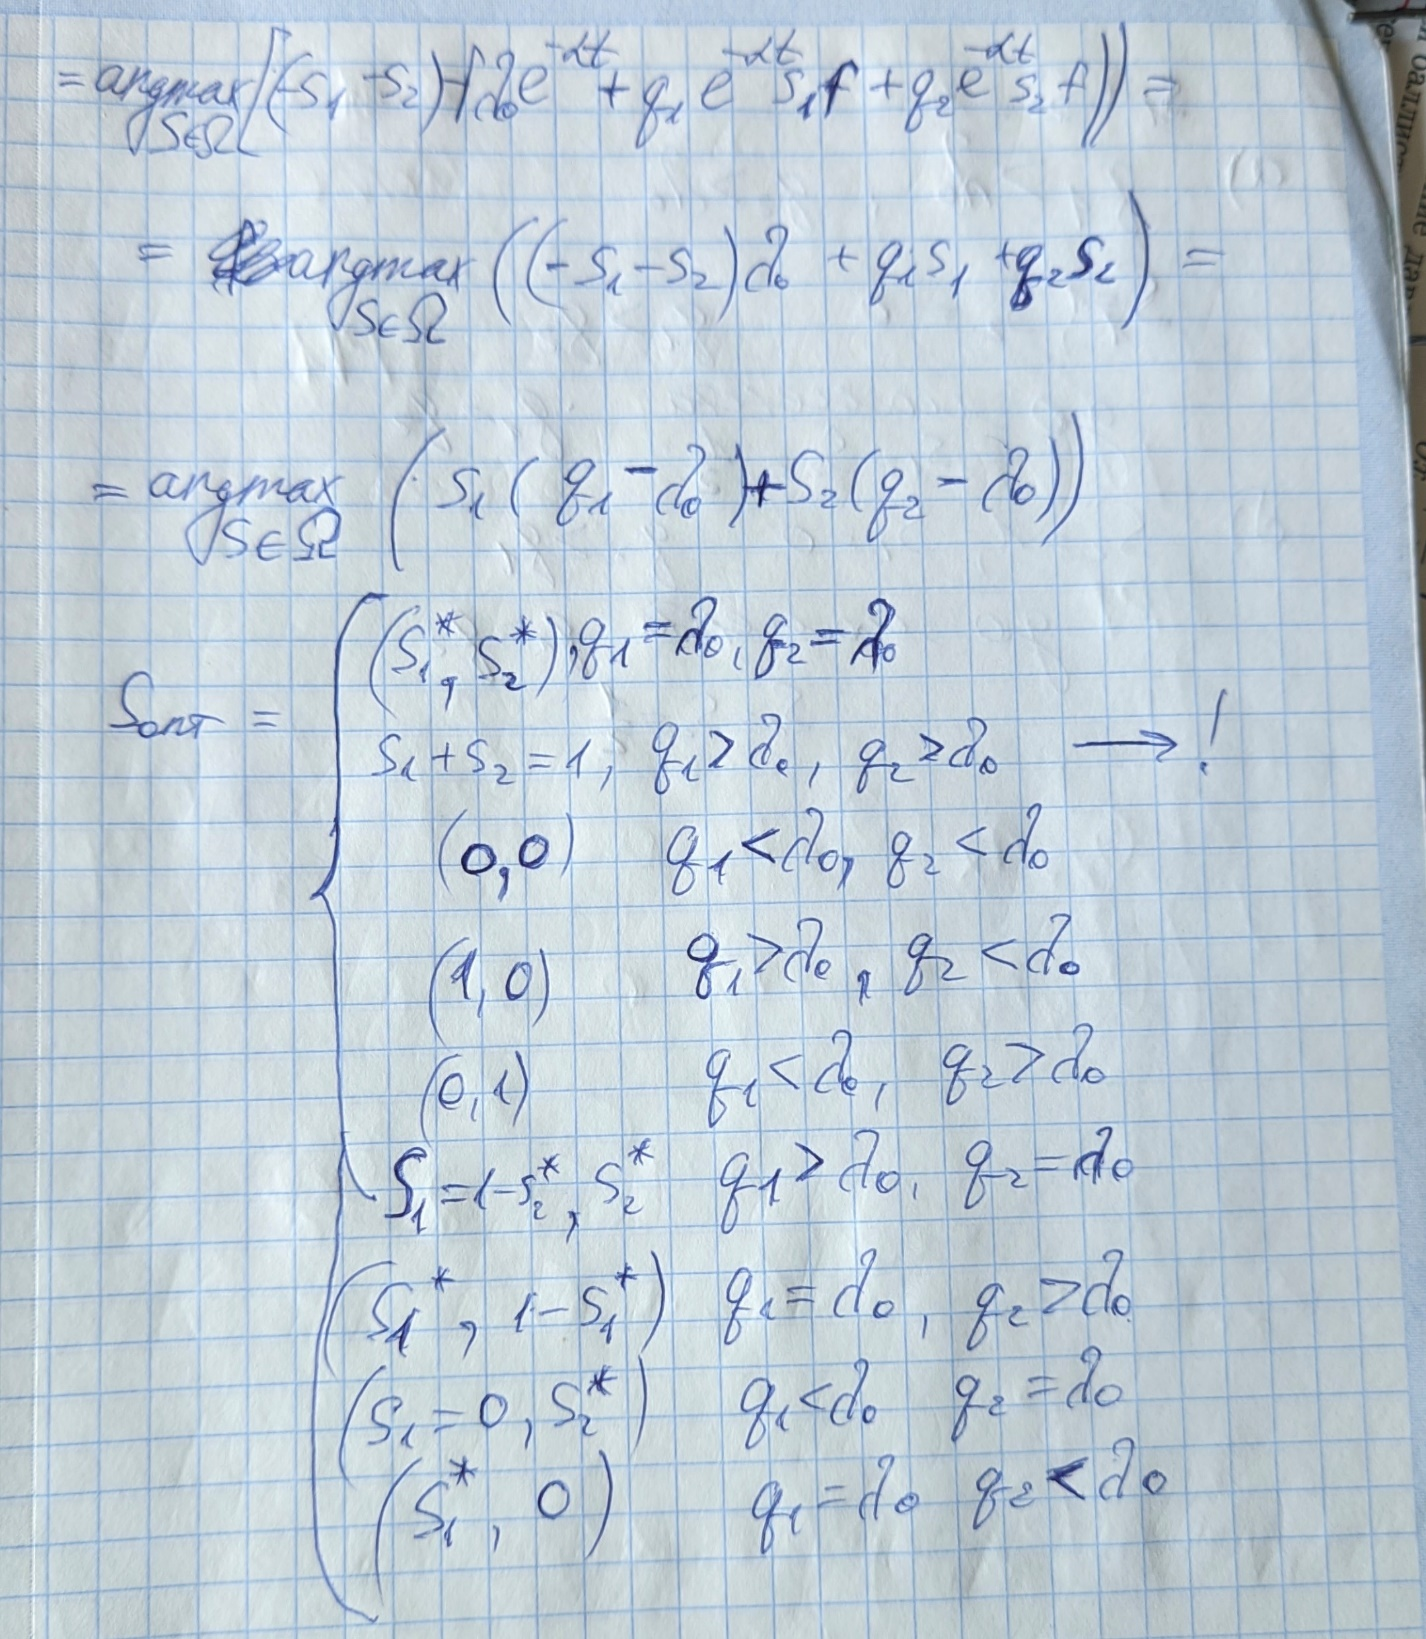 = argmax_{S∈Ω} [(-s₁ -s₂) f λ₀e^{-αt} + q₁ e^{-αt} s₁f + q₂e^{-αt} s₂ f)) =
= argmax_{S∈Ω} ((-s₁-s₂)λ₀ + q₁s₁ + q₂s₂) =
= argmax_{S∈Ω} (s₁(q₁-λ₀)+S₂(q₂-λ₀))
Sопт = {
(S₁*, S₂*), q₁=λ₀, q₂=λ₀
s₁+s₂=1, q₁>λ₀, q₂>λ₀ → !
(0,0) q₁<λ₀, q₂<λ₀
(1,0) q₁>λ₀, q₂<λ₀
(0,1) q₁<λ₀, q₂>λ₀
S₁=1-s₂*, S₂* q₁>λ₀, q₂=λ₀
(S₁*, 1-S₁*) q₁=λ₀, q₂>λ₀
(S₁=0, S₂*) q₁<λ₀ q₂=λ₀
(S₁*, 0) q₁=λ₀ q₂<λ₀